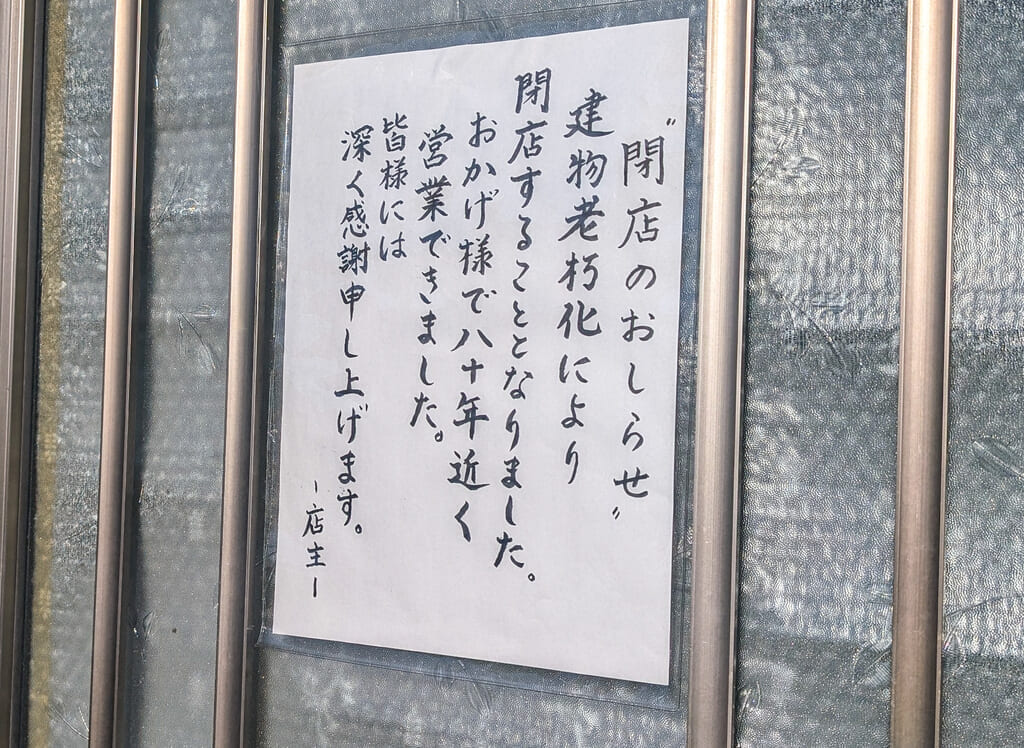 〝閉店のおしらせ〟
建物老朽化により
閉店することとなりました。
おかげ様で八十年近く
営業できました。
皆様には
深く感謝申し上げます。
ー店主ー